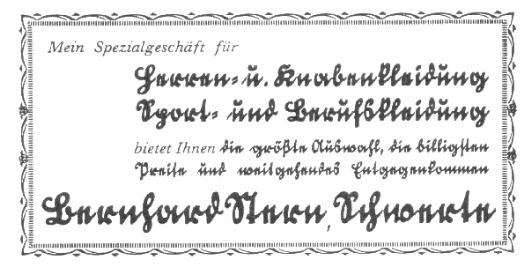 Mein Spezialgeschäft für
Herren- u. Knabenkleidung
Sport- und Berufskleidung
bietet Ihnen die größte Auswahl, die billigsten
Preise und weitgehendes Entgegenkommen
Bernhard Stern, Schwerte